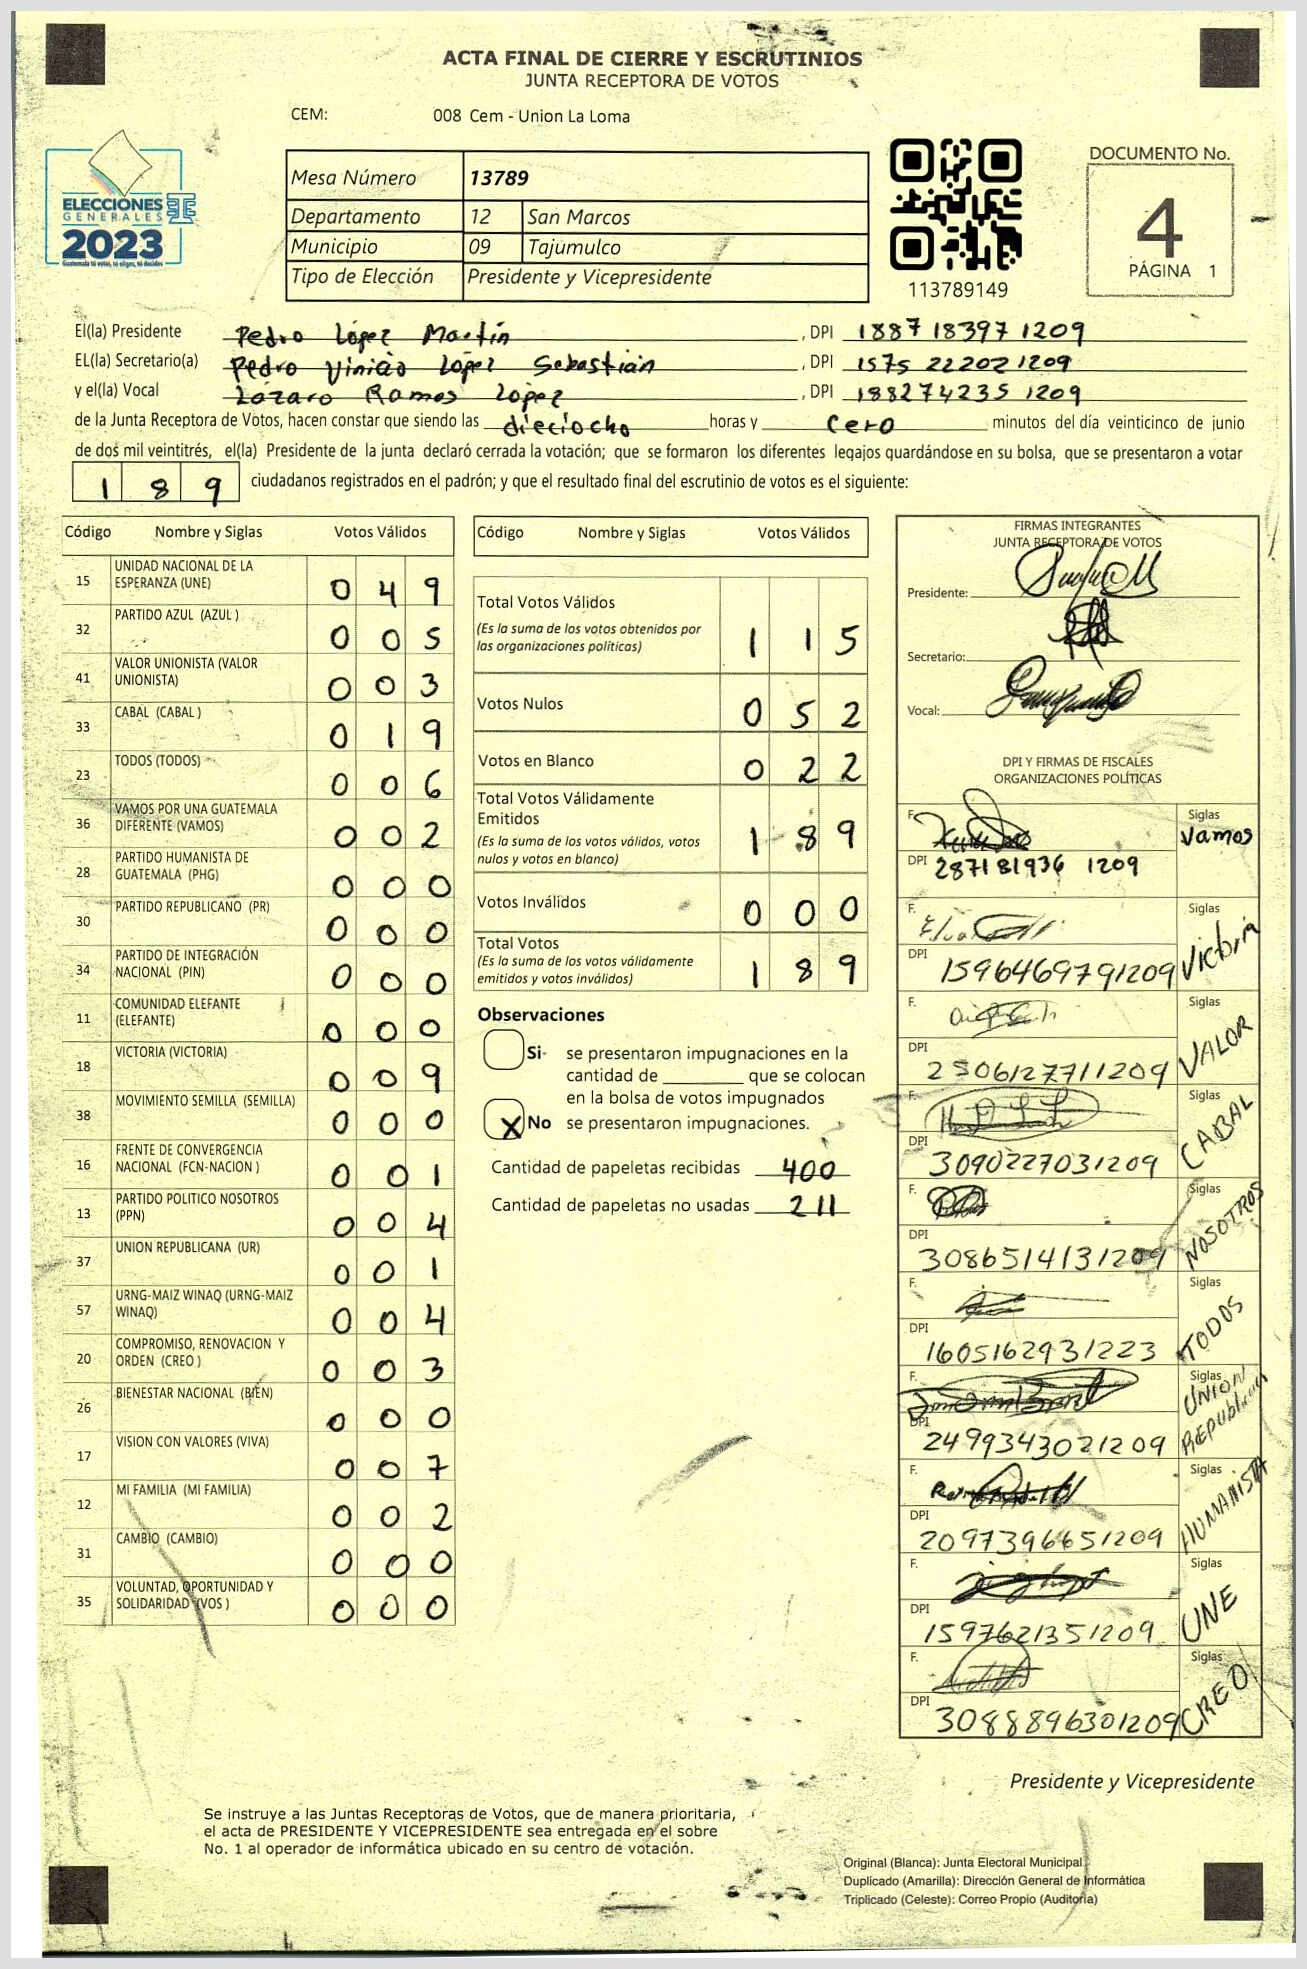 ACTA FINAL DE CIERRE Y ESCRUTINIOS
JUNTA RECEPTORA DE VOTOS
CEM: 008 Cem - Union La Loma
ELECCIONES
GENERALES
2023
Guatemala tú votas, tú eliges, tú decides
Mesa Número 13789
Departamento 12 San Marcos
Municipio 09 Tajumulco
Tipo de Elección Presidente y Vicepresidente
113789149
DOCUMENTO No.
4
PÁGINA 1
El(la) Presidente Pedro López Martín , DPI 1887 18397 1209
EL(la) Secretario(a) Pedro Vinicio López Sebastián , DPI 1575 22202 1209
y el(la) Vocal Lázaro Ramos López , DPI 188274235 1209
de la Junta Receptora de Votos, hacen constar que siendo las dieciocho horas y cero minutos del día veinticinco de junio
de dos mil veintitrés, el(la) Presidente de la junta declaró cerrada la votación; que se formaron los diferentes legajos guardándose en su bolsa, que se presentaron a votar
1 8 9 ciudadanos registrados en el padrón; y que el resultado final del escrutinio de votos es el siguiente:
Código Nombre y Siglas Votos Válidos
15 UNIDAD NACIONAL DE LA ESPERANZA (UNE) 0 4 9
32 PARTIDO AZUL (AZUL ) 0 0 5
41 VALOR UNIONISTA (VALOR UNIONISTA) 0 0 3
33 CABAL (CABAL ) 0 1 9
23 TODOS (TODOS) 0 0 6
36 VAMOS POR UNA GUATEMALA DIFERENTE (VAMOS) 0 0 2
28 PARTIDO HUMANISTA DE GUATEMALA (PHG) 0 0 0
30 PARTIDO REPUBLICANO (PR) 0 0 0
34 PARTIDO DE INTEGRACIÓN NACIONAL (PIN) 0 0 0
11 COMUNIDAD ELEFANTE (ELEFANTE) 0 0 0
18 VICTORIA (VICTORIA) 0 0 9
38 MOVIMIENTO SEMILLA (SEMILLA) 0 0 0
16 FRENTE DE CONVERGENCIA NACIONAL (FCN-NACION ) 0 0 1
13 PARTIDO POLITICO NOSOTROS (PPN) 0 0 4
37 UNION REPUBLICANA (UR) 0 0 1
57 URNG-MAIZ WINAQ (URNG-MAIZ WINAQ) 0 0 4
20 COMPROMISO, RENOVACION Y ORDEN (CREO ) 0 0 3
26 BIENESTAR NACIONAL (BIEN) 0 0 0
17 VISION CON VALORES (VIVA) 0 0 7
12 MI FAMILIA (MI FAMILIA) 0 0 2
31 CAMBIO (CAMBIO) 0 0 0
35 VOLUNTAD, OPORTUNIDAD Y SOLIDARIDAD (VOS ) 0 0 0
Código Nombre y Siglas Votos Válidos
Total Votos Válidos
(Es la suma de los votos obtenidos por
las organizaciones políticas) 1 1 5
Votos Nulos 0 5 2
Votos en Blanco 0 2 2
Total Votos Válidamente
Emitidos
(Es la suma de los votos válidos, votos
nulos y votos en blanco) 1 8 9
Votos Inválidos 0 0 0
Total Votos
(Es la suma de los votos válidamente
emitidos y votos inválidos) 1 8 9
Observaciones
Si- se presentaron impugnaciones en la
cantidad de ________ que se colocan
en la bolsa de votos impugnados
X No se presentaron impugnaciones.
Cantidad de papeletas recibidas 400
Cantidad de papeletas no usadas 211
FIRMAS INTEGRANTES
JUNTA RECEPTORA DE VOTOS
Presidente:
Secretario:
Vocal:
DPI Y FIRMAS DE FISCALES
ORGANIZACIONES POLÍTICAS
F. Siglas Vamos
DPI 287181936 1209
F. Siglas Victoria
DPI 1596469791209
F. Siglas VALOR
DPI 2506127711209
F. Siglas CABAL
DPI 3090227031209
F. Siglas NOSOTROS
DPI 3086514131209
F. Siglas TODOS
DPI 1605162931223
F. Siglas UNION REPUBlicana
DPI 2499343021209
F. Siglas HUMANISTA
DPI 2097396651209
F. Siglas UNE
DPI 1597621351209
F. Siglas CREO
DPI 3088896301209
Presidente y Vicepresidente
Se instruye a las Juntas Receptoras de Votos, que de manera prioritaria,
el acta de PRESIDENTE Y VICEPRESIDENTE sea entregada en el sobre
No. 1 al operador de informática ubicado en su centro de votación.
Original (Blanca): Junta Electoral Municipal
Duplicado (Amarilla): Dirección General de Informática
Triplicado (Celeste): Correo Propio (Auditoría)